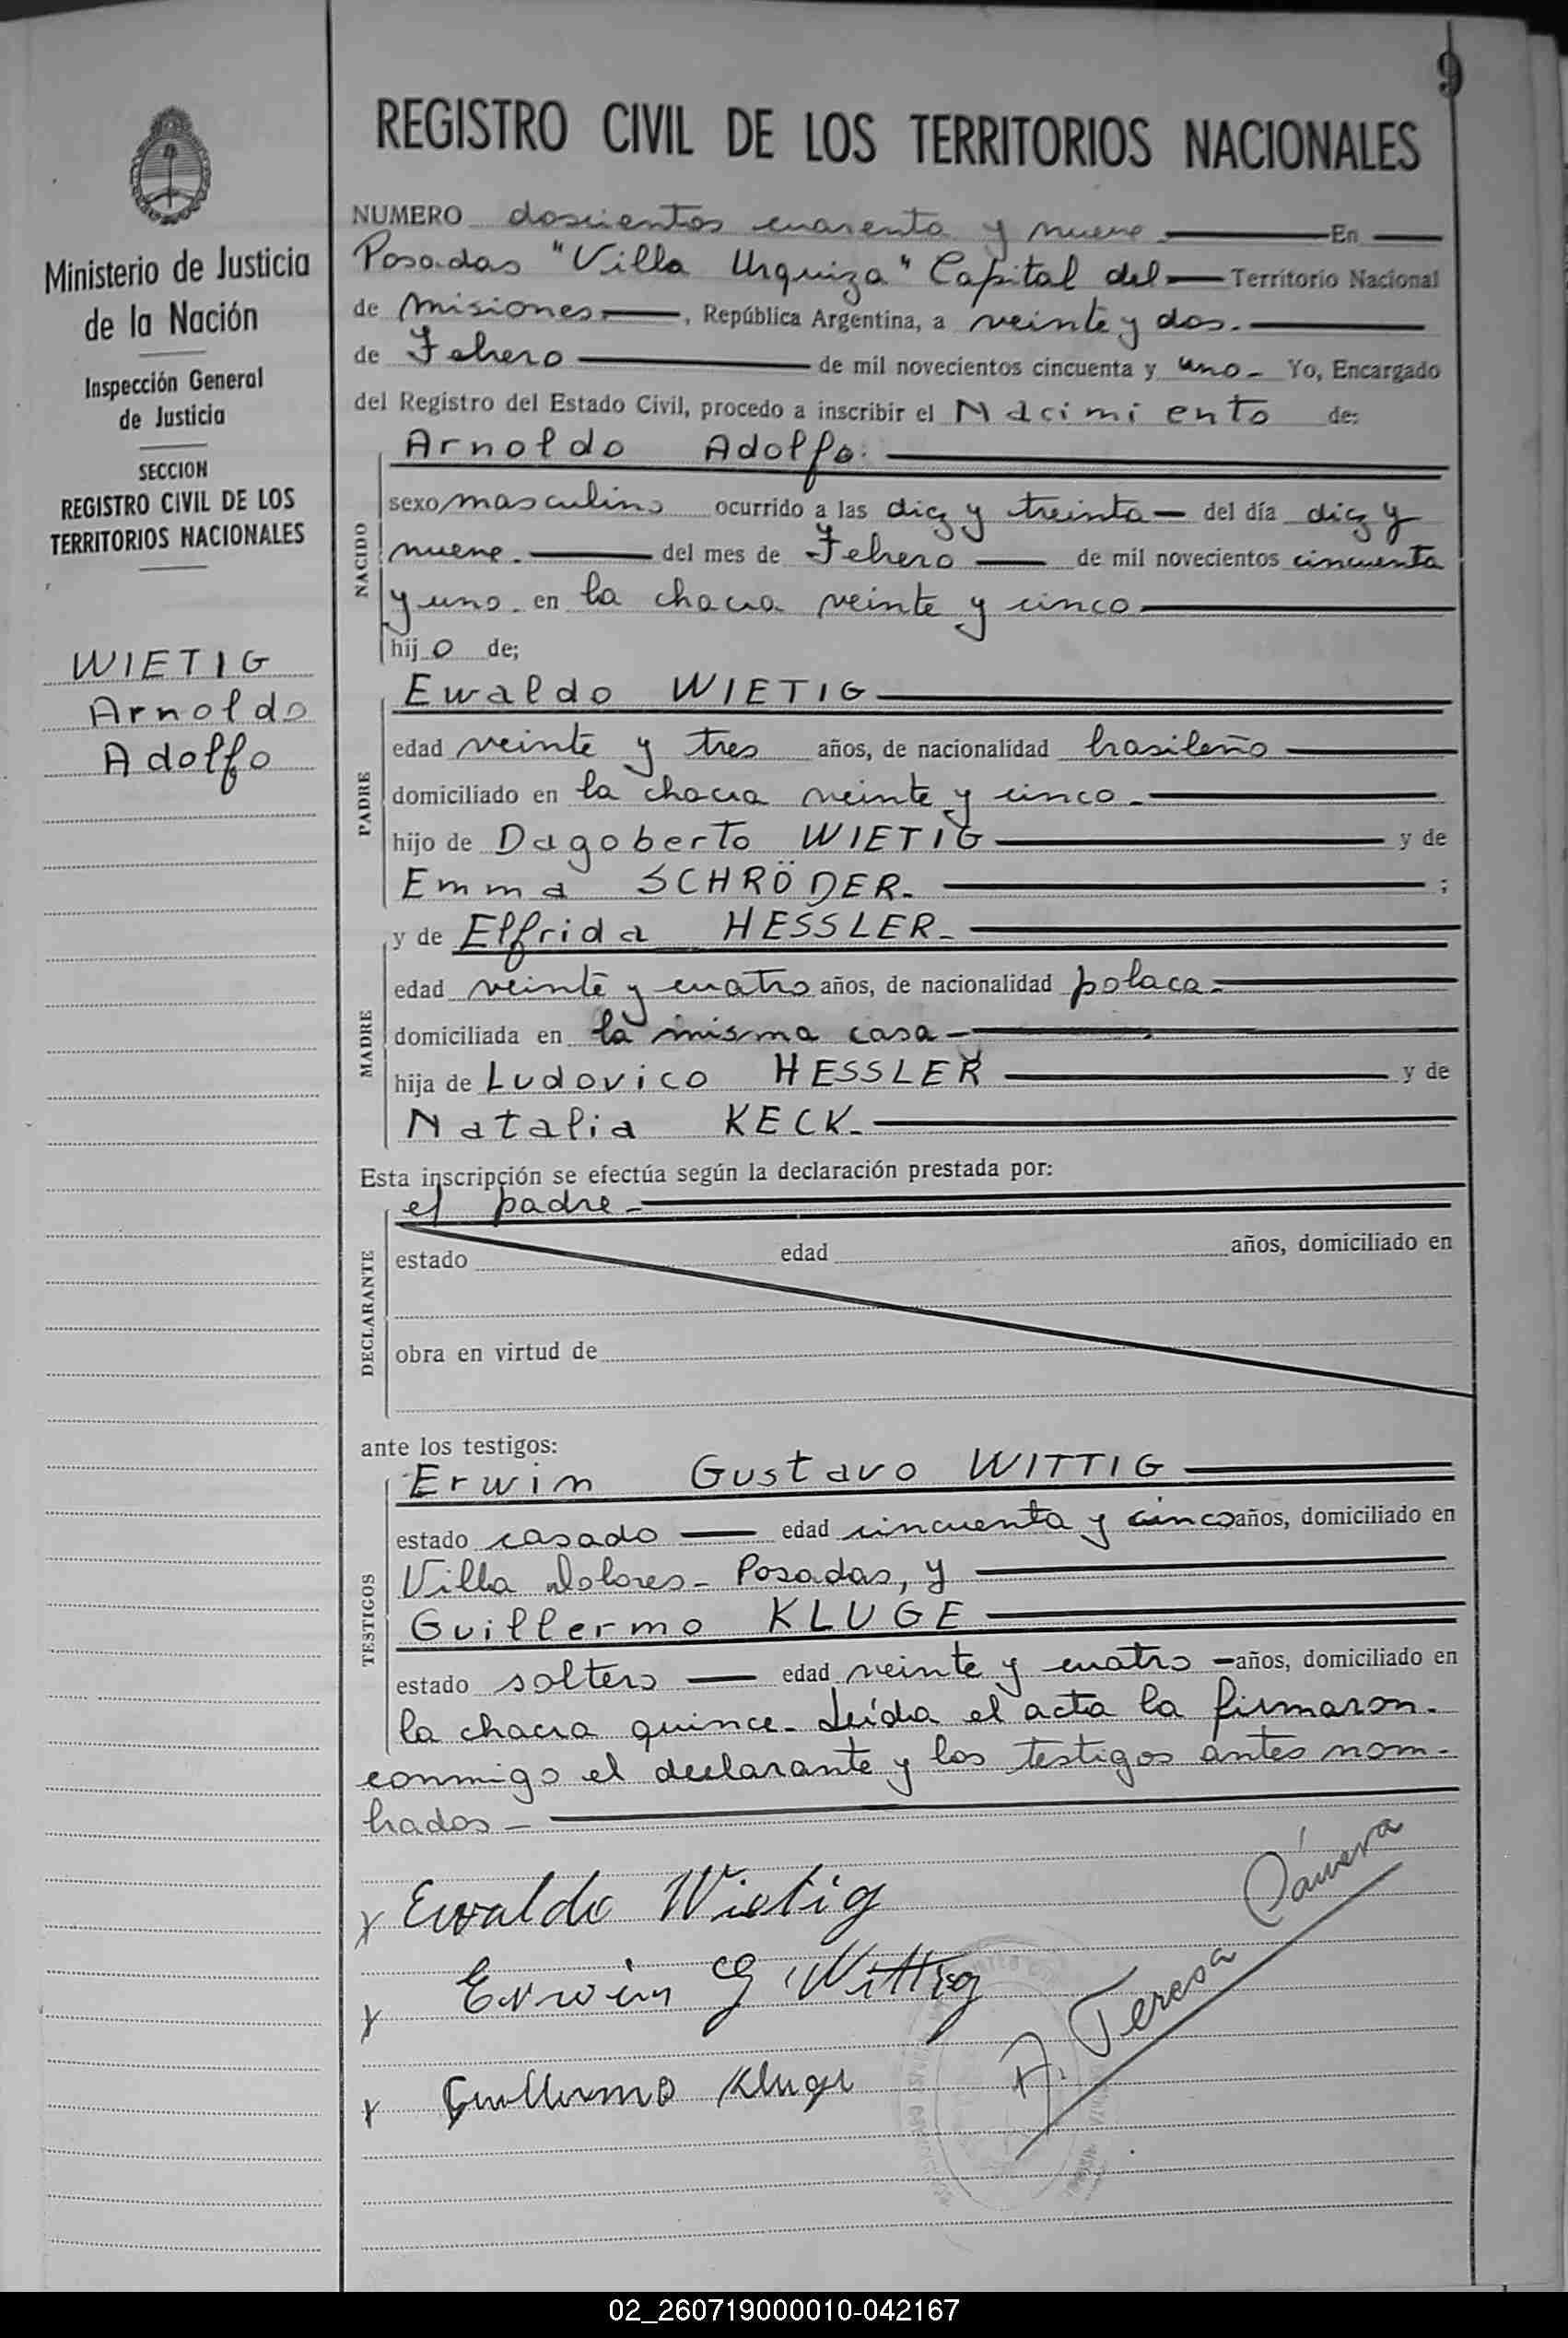 9
REGISTRO CIVIL DE LOS TERRITORIOS NACIONALES
Ministerio de Justicia
de la Nación
Inspección General
de Justicia
SECCION
REGISTRO CIVIL DE LOS
TERRITORIOS NACIONALES
WIETIG
Arnoldo
Adolfo
NUMERO doscientos cuarenta y nueve. En
Posadas "Villa Urquiza" Capital del Territorio Nacional
de Misiones, República Argentina, a veinte y dos.
de Febrero de mil novecientos cincuenta y uno- Yo, Encargado
del Registro del Estado Civil, procedo a inscribir el Nacimiento de:
NACIDO
Arnoldo Adolfo.
sexo masculino ocurrido a las diez y treinta — del día diez y
nueve. del mes de Febrero de mil novecientos cincuenta
y uno. en la chacra veinte y cinco
hijo de;
PADRE
Ewaldo WIETIG
edad veinte y tres años, de nacionalidad brasileño
domiciliado en la chacra veinte y cinco-
hijo de Dagoberto WIETIG y de
Emma SCHRÖDER- ;
MADRE
y de Elfrida HESSLER-
edad veinte y cuatro años, de nacionalidad polaca-
domiciliada en la misma casa-
hija de Ludovico HESSLER y de
Natalia KECK-
Esta inscripción se efectúa según la declaración prestada por:
DECLARANTE
el padre-
estado edad años, domiciliado en
obra en virtud de
ante los testigos:
TESTIGOS
Erwin Gustavo WITTIG
estado casado — edad cincuenta y cinco años, domiciliado en
Villa Dolores- Posadas, y
Guillermo KLUGE
estado soltero — edad veinte y cuatro — años, domiciliado en
la chacra quince- Leída el acta la firmaron-
conmigo el declarante y los testigos antes nom-
brados-
x Ewaldo Wietig
x Erwin G Wittig
x Guillermo Kluge
A. Teresa Cámera
02_260719000010-042167